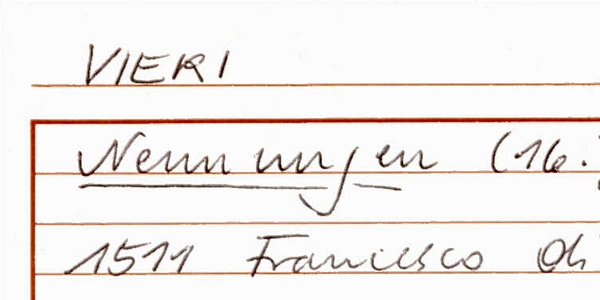 VIERI
Nennungen (16.
1511 Francesco di